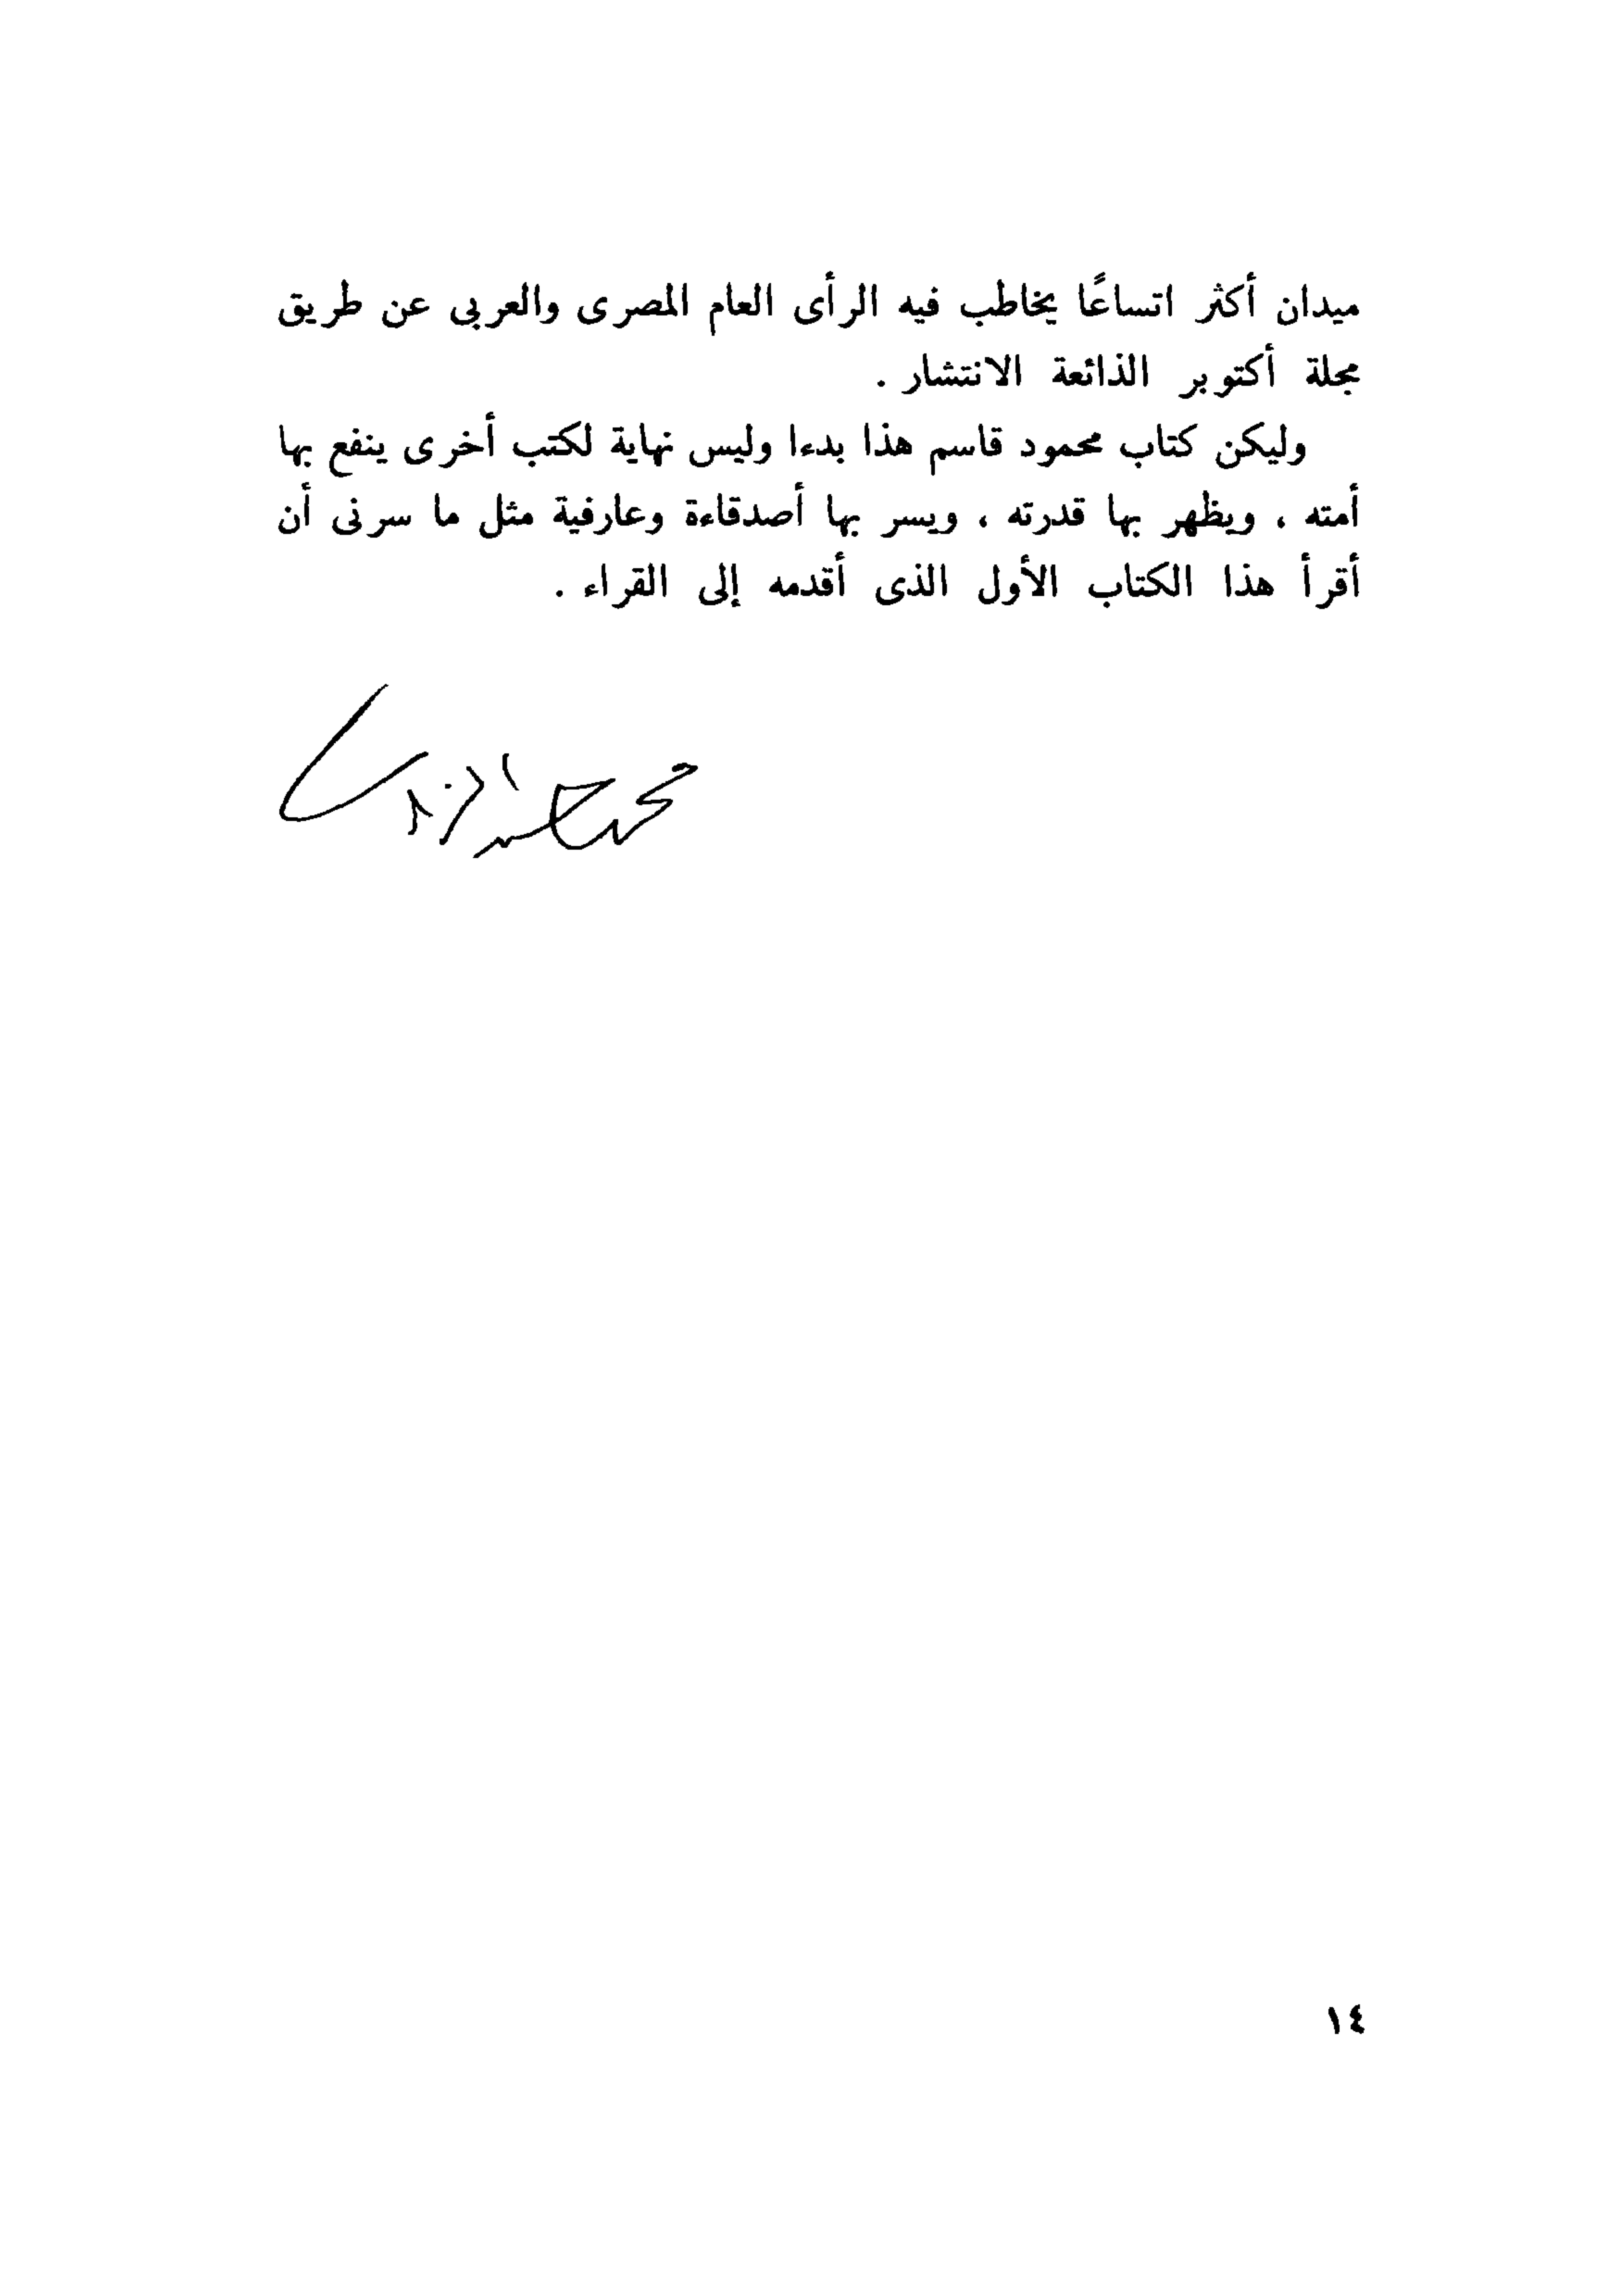 ميدان أكثر اتساعًا يخاطب فيه الرأى العام المصرى والعربى عن طريق
مجلة أكتوبر الذائعة الانتشار .
وليكن كتاب محمود قاسم هذا بدءا وليس نهاية لكتب أخرى ينفع بها
أمته ، ويظهر بها قدرته ، ويسر بها أصدقاءة وعارفية مثل ما سرنى أن
أقرأ هذا الكتاب الأول الذى أقدمه إلى القراء .
١٤